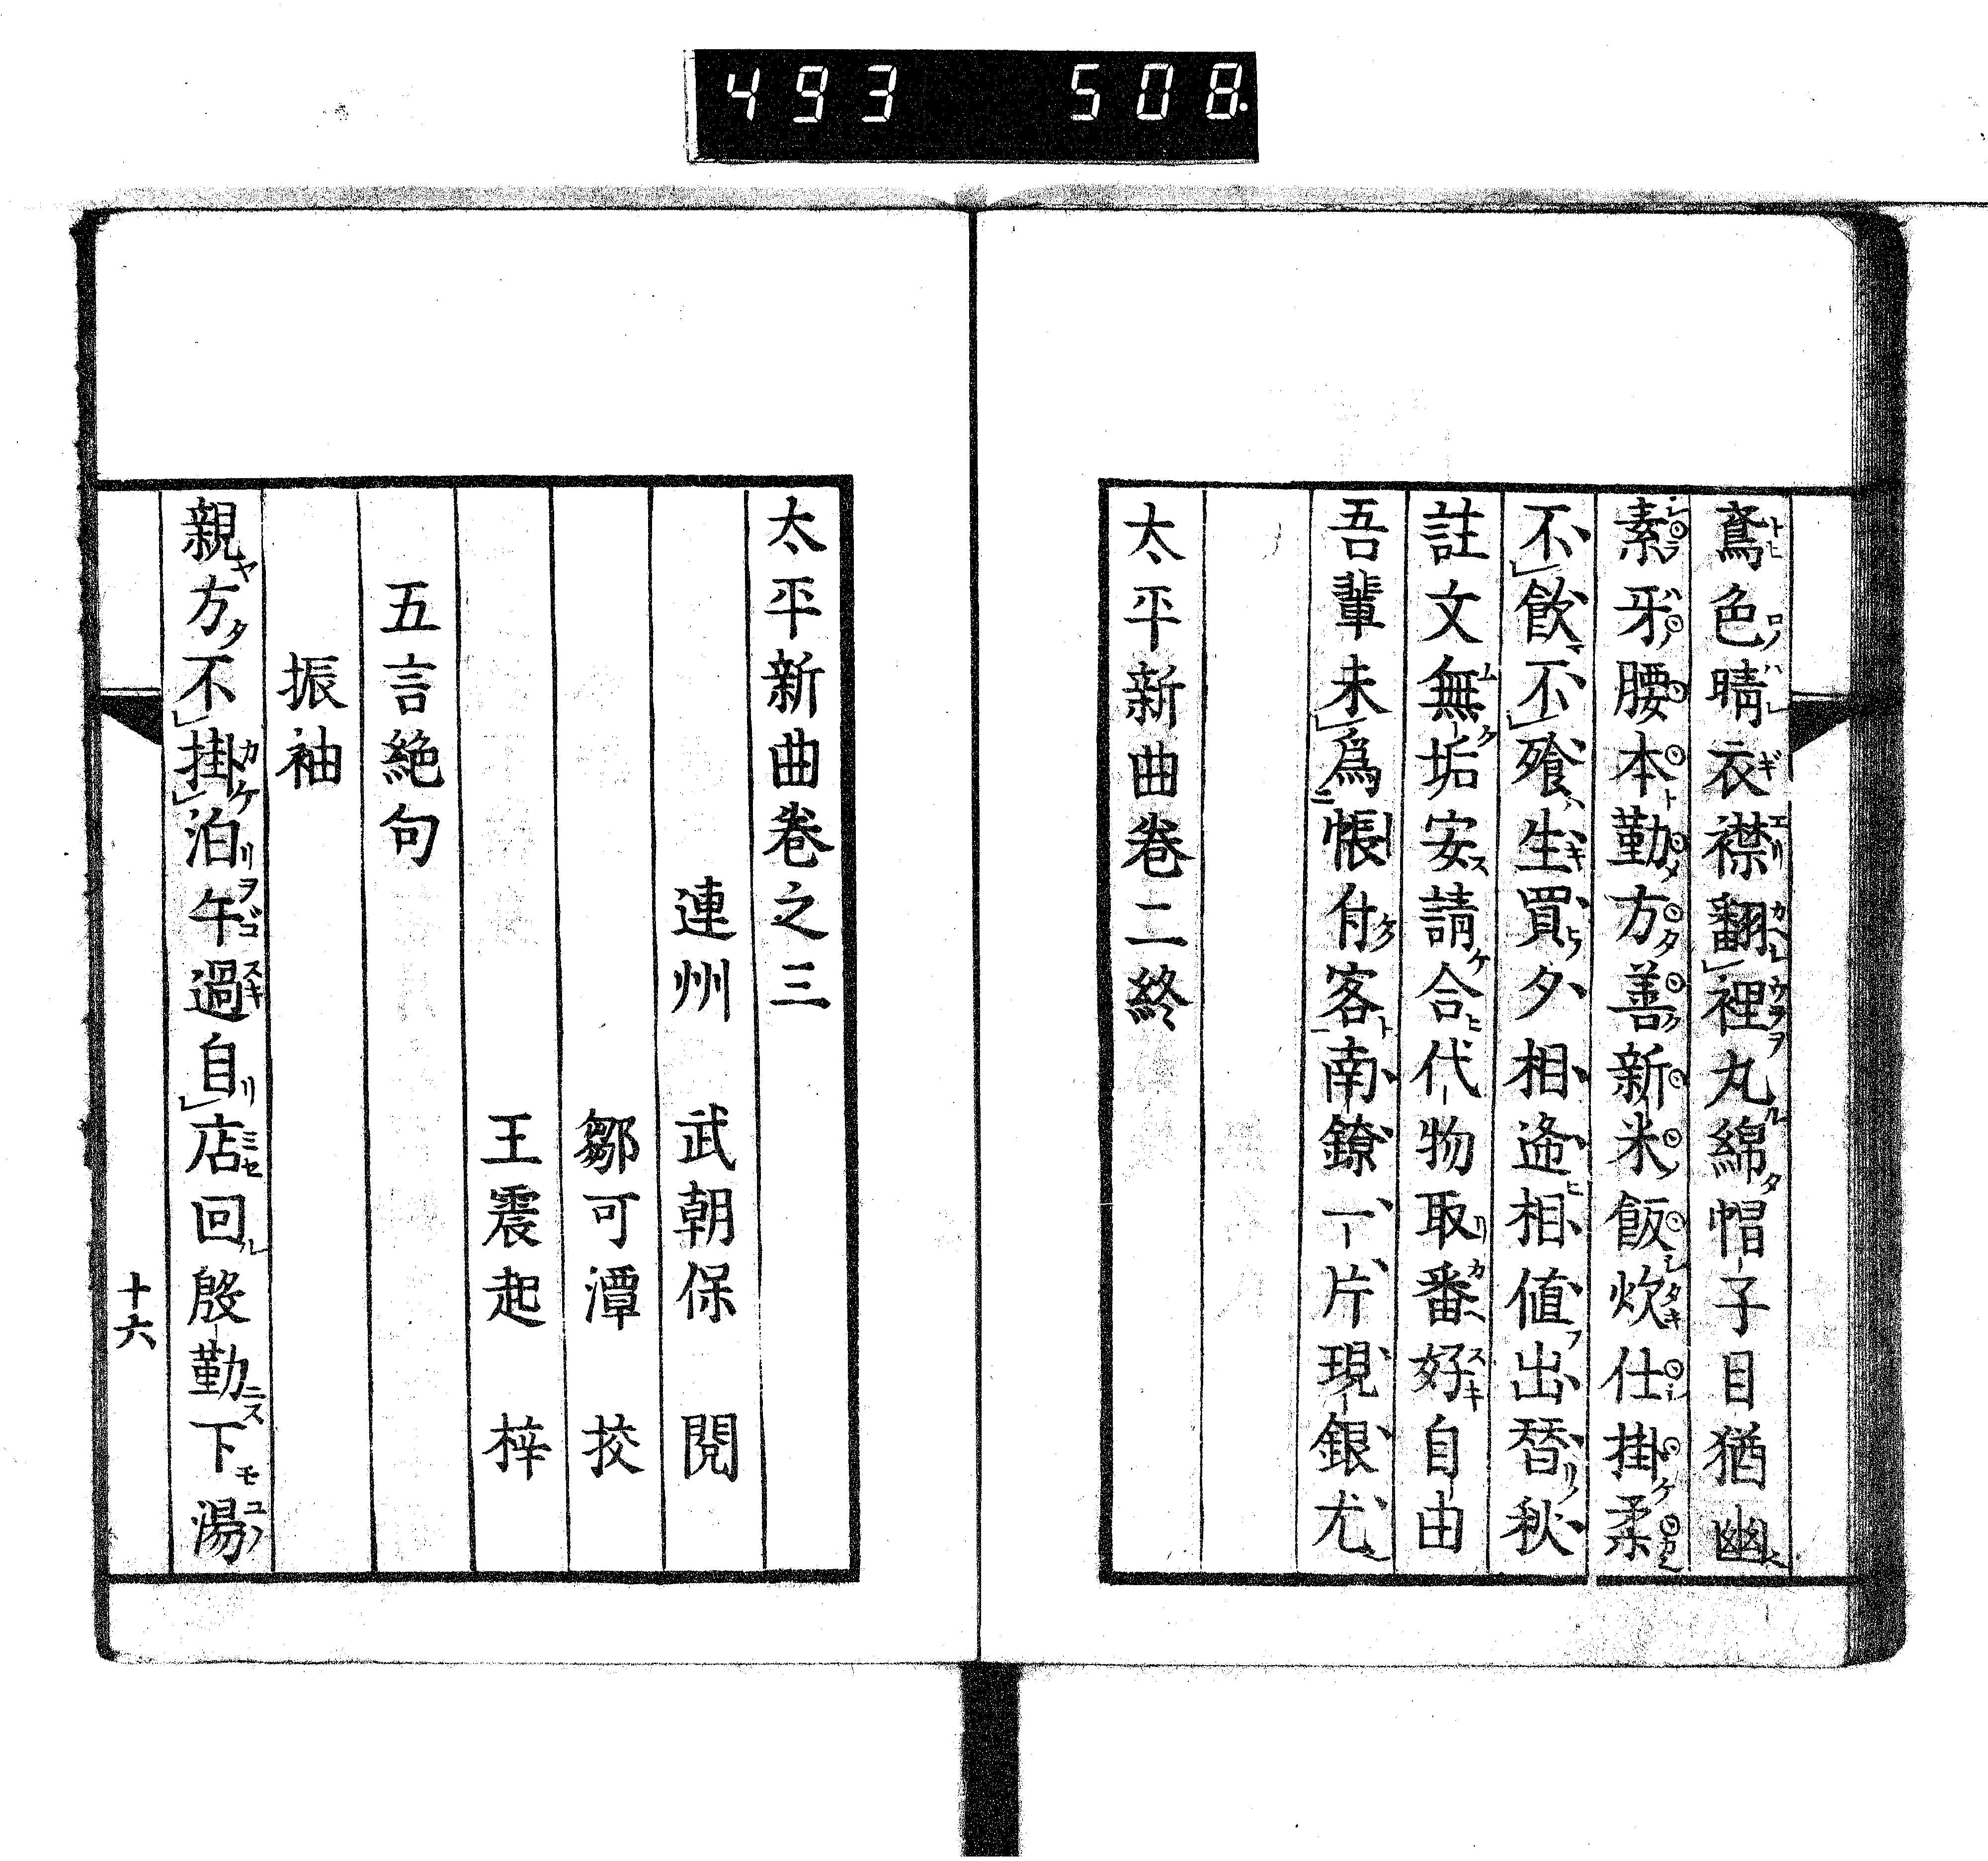 493 508.
鳶色晴衣襟翻裡丸綿帽子目猶幽
素牙腰本勤方善新米飯炊仕掛柔
不飲不飧生買夕相逢相値出替秋
註文無垢安請合代物取番好自由
吾輩未爲帳付客南鐐一片現銀尤
太平新曲卷二終
太平新曲卷之三
連州 武朝保 閱
鄒可潭 挍
王震起 梓
五言絶句
振袖
親方不掛泊午過自店回慇勤下湯
十六